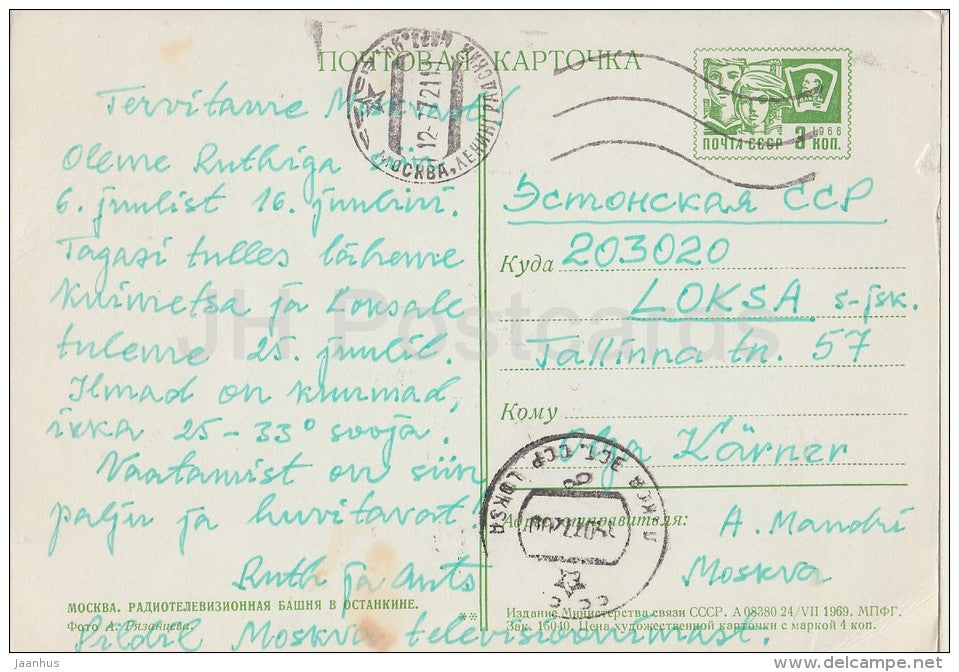 ПОЧТОВАЯ КАРТОЧКА
Tervitame Moskvast!
Oleme Ruthiga siin
6. juulist 16. juulini.
Tagasi tulles läheme
Kuimetsa ja Loksale
tuleme 25. juulil.
Ilmad on kuumad,
ikka 25-33° sooja.
Vaatamist on siin
palju ja huvitavat!
Ruth ja Ants
Pildil Moskva televisioonimast.
МОСКВА. РАДИОТЕЛЕВИЗИОННАЯ БАШНЯ В ОСТАНКИНЕ.
Фото А. Рязанцева.
**
МОСКВА, ЛЕНИНГРАДСКИЙ
12-7 72 11
1966
ПОЧТА СССР 3 КОП.
Эстонская ССР
Куда 203020
LOKSA s-jsk.
Tallinna tn. 57
Кому
Olga Kärner
ЭСТ. ССР LOKSA
Адрес отправителя:
A. Mandri
Moskva
Издание Министерства связи СССР. А 08380 24/VII 1969. МПФГ.
Зак. 15040. Цена художественной карточки с маркой 4 коп.
JH Postcards
jaanhus
www.delcampe.net